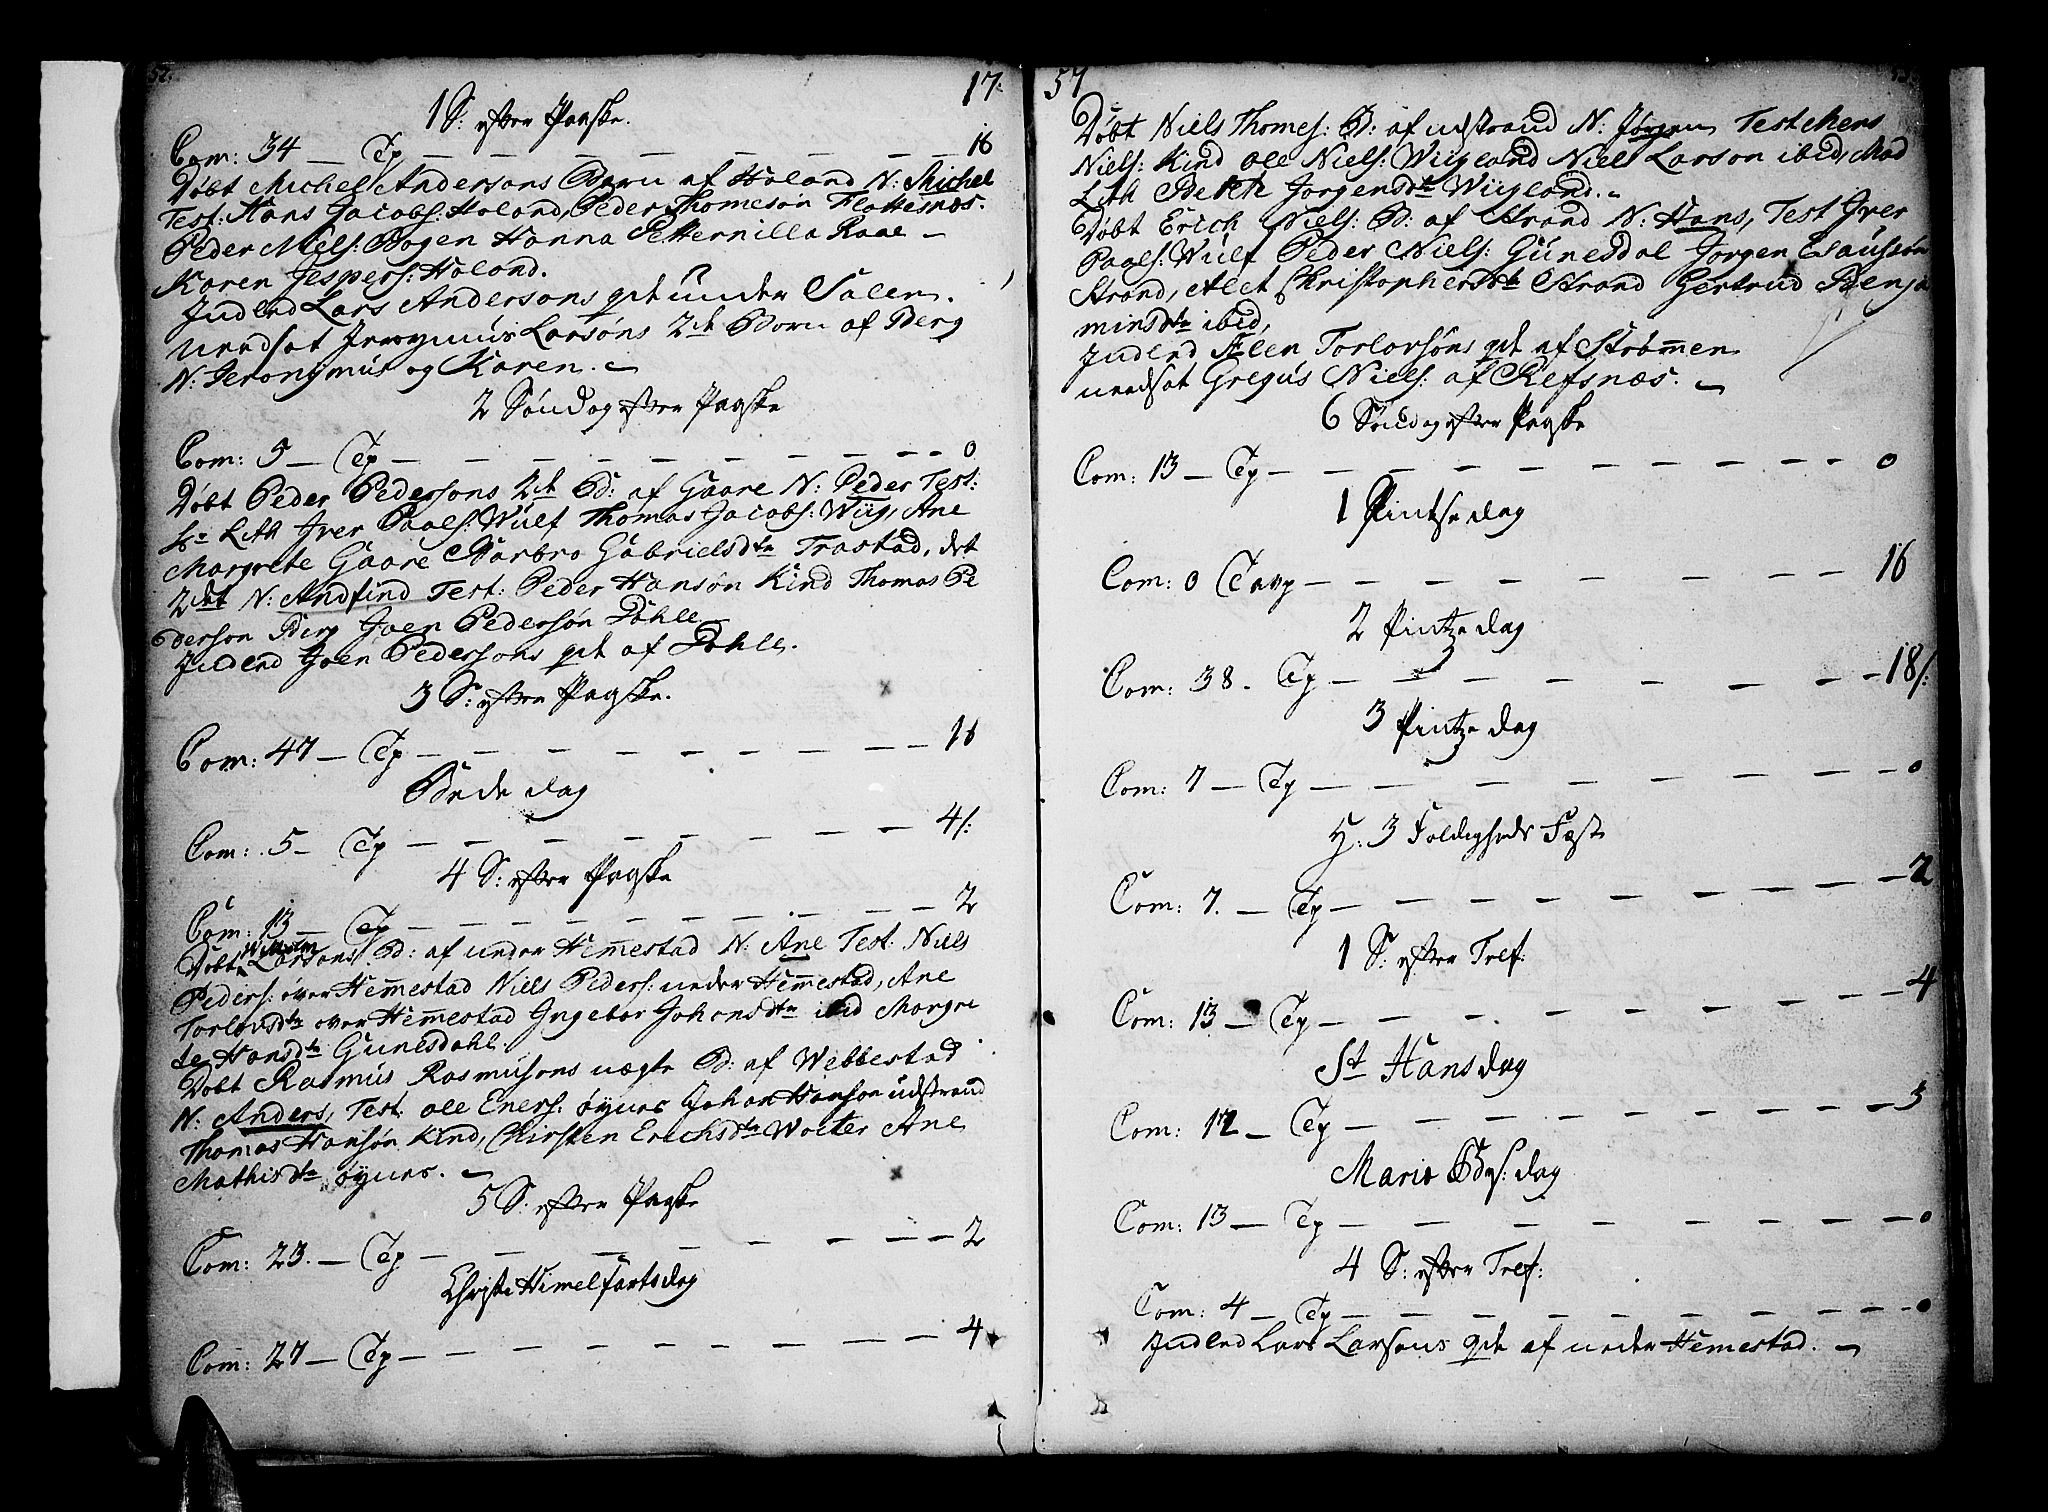 52.
17.
1 S: efter Paaske.
Com: 34 — Tep — — — — — — 16
Døbt Michel Andersøns Barn af Holand N: Michel
Test: Hans Jacobs: Holand, Peder Thomesøn Flattesnæs.
Peder Niels: Bogen Hanna Petternilla Raae —
Karen Jespers: Holand.
Indlend Lars Andersøns qde under Salen.
uredsat Jeronymus Larsøns 2de Børn af Berg
N: Jeronymus og Karen.
2 Søndag efter Paaske
Com: 5 — Tep — — — — — — 0
Døbt Peder Pedersøns 2de B: af Gaare N: Peder Test:
Sr Lith Jver Paals: Wulf Thomas Jacobs: Wiig, Ane
Margrete Gaare Barbro Gabrielsdtr Trastad, det
2det N: Andfind Test: Peder Hansøn Kind Thomas Pe
dersøn Berg Joen Pedersøn Dahle
Indlend Joen Pedersøns qde af Dahle.
3 S: efter Paaske.
Com: 47 — Tep — — — — — — 16
Bede dag
Com: 5 — Tep — — — — — — 4/:
4 S: efter Paaske
Com: 13 — Tep — — — — — — 2
Døbt Willum Larsøns B: af under Hemmestad N: Ane Test: Niels
Peders: over Hemmestad Niels Peders: under Hemmestad, Ane
Torlovsdtr over Hemmestad Jngebor Johansdtr ibid Margre
te Hansdtr Gunesdahl.
Døbt Rasmus Rasmusøns uægte B: af Webbestad
N: Anders, Test: Ole Eners: øynes Johan Hansøn udstrand
Thomas Hansøn Kind, Chirsten Erichsdtr Wolter Ane
Mathisdtr øynes. —
5 S: efter Paaske
Com: 23. — Tep — — — — — — 2
Christi Himelfartsdag
Com: 27 — Tep — — — — — — 4
57
Døbt Niels Thomes: B: af udstrand N: Jørgen Test Mens
Niels: Kind Ole Niels: Wiigland Niels Larsøn ibid, Mad
Lith Bereth Jørgensdtr Wiigland.
Døbt Erich Niels: B: af Strand N: Hans, Test Jver
Paals: Wulf Peder Niels: Gunesdal Jørgen Esausøn
Strand, Alet Christophersdtr Strand Gertrud Benja
minsdtr ibid,
Indlend Elen Torlovsøns qde af Støbmen
uredsat Gregus Niels: af Refsnæs. —
6 Søndag efter Paaske
Com: 13 — Tep — — — — — — 0
1 Pintse dag
Com: 0 Tavp — — — — — — 16
2 Pintze dag
Com: 38. Tep — — — — — — 18/:
3 Pintze dag
Com: 7 — Tep — — — — — — 0
H: 3 Foldigheds Fæst
Com: 7. — Tep — — — — — — 2
1 S: efter Tref:
Com: 13 — Tep — — — — — — 4
St Hans dag
Com: 12 — Tep — — — — — — 3
Mariæ Bes: dag
Com: 13 — Tep — — — — — — 0
4 S: efter Tref:
Com: 4 — Tep — — — — — — 0
Indlend Lars Larsøns qde af under Hemestad. —